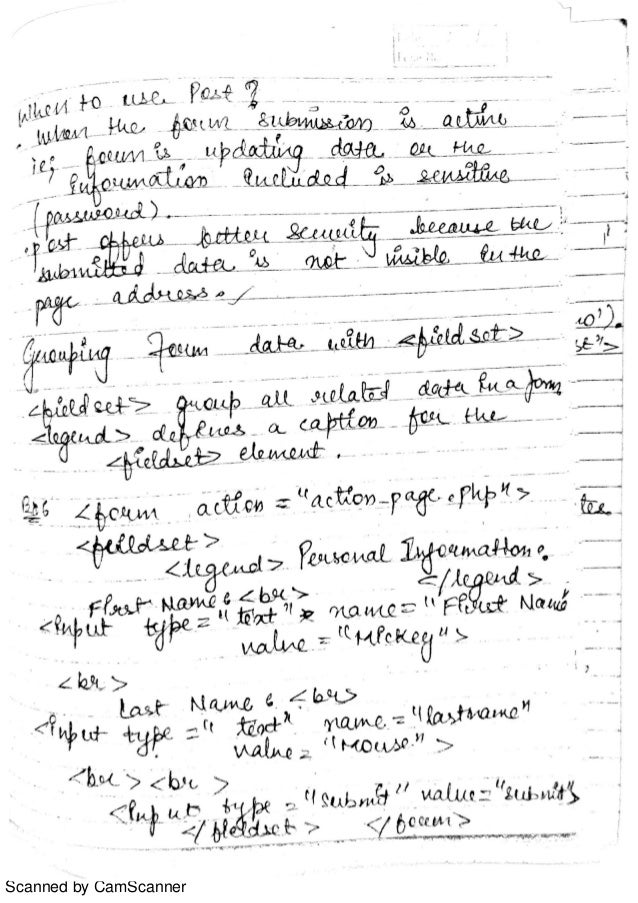 When to use Post ?
. When the form submission is active
ie; form is updating data or the
information included is sensitive
(password).
.post offers better security because the
submitted data is not visible in the
page address.
Grouping Form data with <field set>
<fieldset> group all related data in a form
<legend> defines a caption for the
<fieldset> element.
<form action = "action-page.php">
<fieldset>
<legend> Personal Information:
</legend>
First Name: <br>
<input type = "text" name = "First Name
value = "Mickey">
<br>
Last Name : <br>
<input type = " text" name = "lastname"
value = "Mouse">
<br> <br >
<input type = "submit" value="submit">
</fieldset> </form>
Scanned by CamScanner